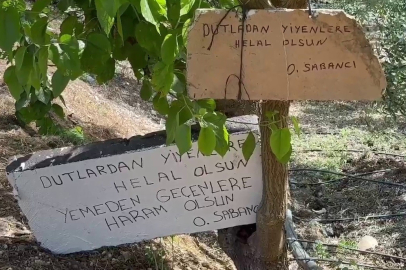 DUTLARDAN YİYENLERE
HELAL OLSUN
O. SABANCI
DUTLARDAN YİYENLERE
HELAL OLSUN
YEMEDEN GEÇENLERE
HARAM OLSUN
O. SABANCI